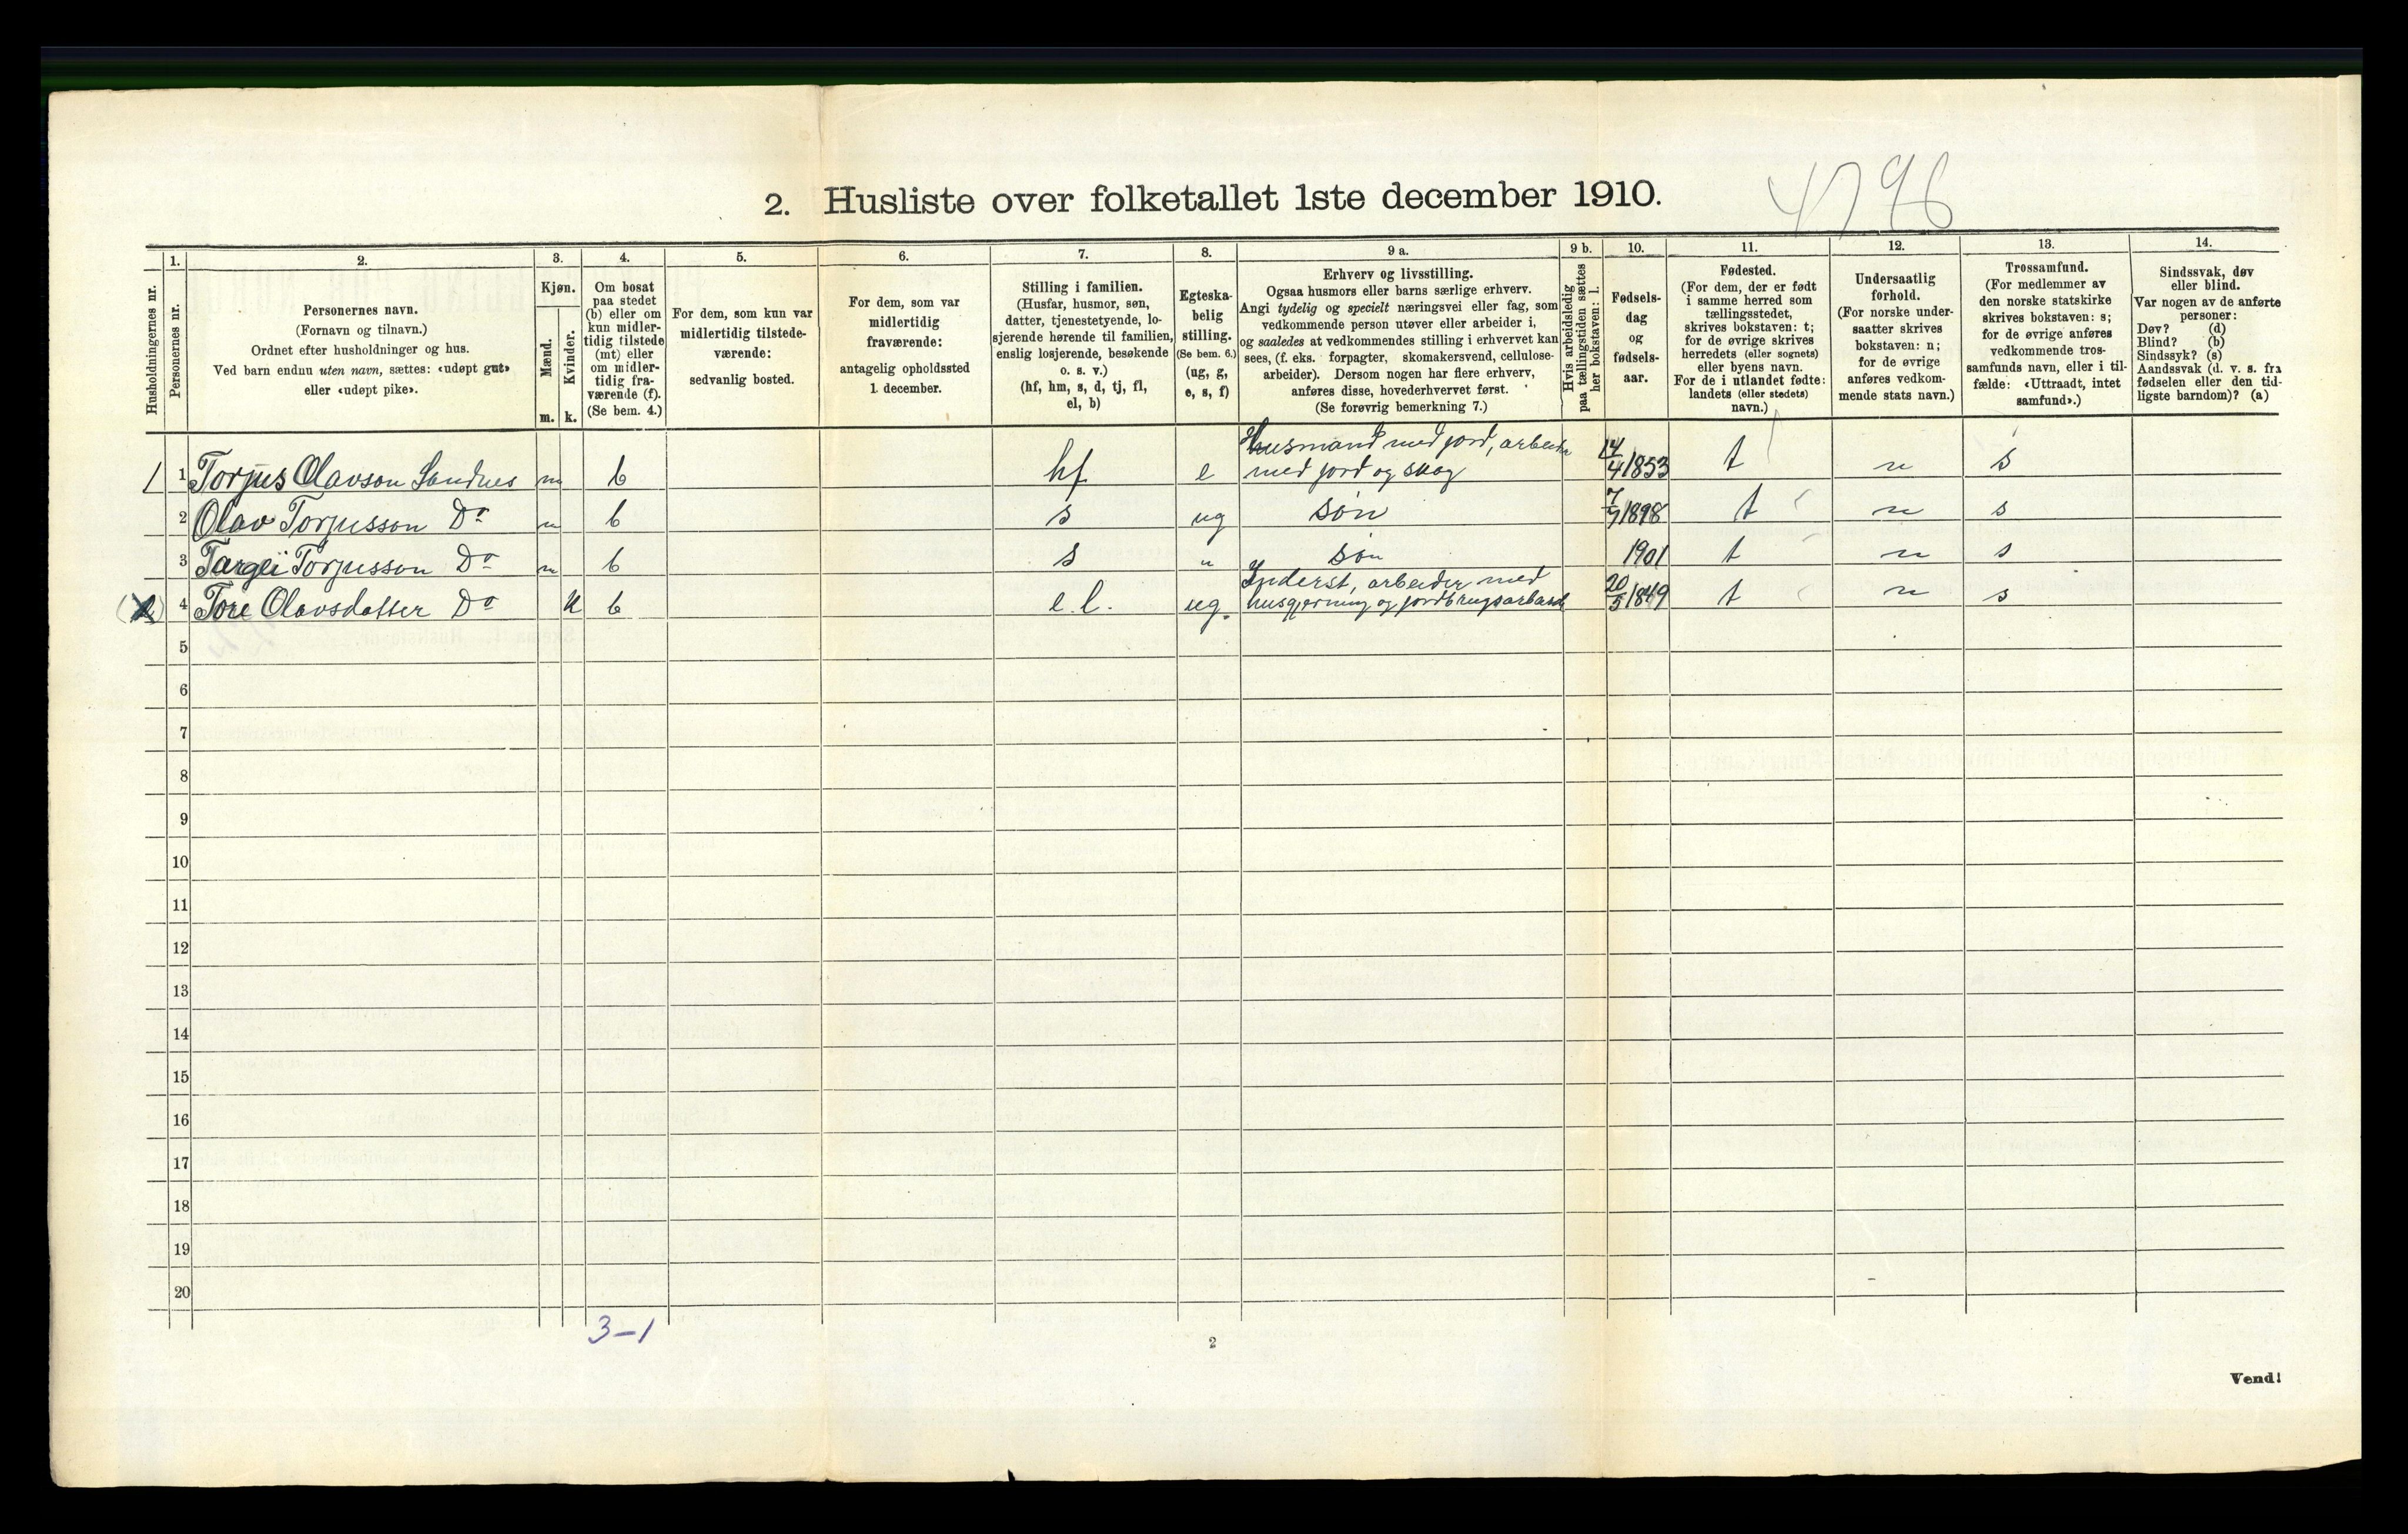 4796
2. Husliste over folketallet 1ste december 1910.
Husholdningernes nr.
1.
Personernes nr.
2.
Personernes navn.
(Fornavn og tilnavn.)
Ordnet efter husholdninger og hus.
Ved barn endnu uten navn, sættes: «udøpt gut»
eller «udøpt pike».
3.
Kjøn.
Mænd.
m.
Kvinder.
k.
4.
Om bosat
paa stedet
(b) eller om
kun midler-
tidig tilstede
(mt) eller
om midler-
tidig fra-
værende (f).
(Se bem. 4.)
5.
For dem, som kun var
midlertidig tilstede-
værende:
sedvanlig bosted.
6.
For dem, som var
midlertidig
fraværende:
antagelig opholdssted
1. december.
7.
Stilling i familien.
(Husfar, husmor, søn,
datter, tjenestetyende, lo-
sjerende hørende til familien,
enslig losjerende, besøkende
o. s. v.)
(hf, hm, s, d, tj, fl,
el, b)
8.
Egteska-
belig
stilling.
(Se bem. 6.)
(ug, g,
e, s, f)
9 a.
Erhverv og livsstilling.
Ogsaa husmors eller barns særlige erhverv.
Angi tydelig og specielt næringsvei eller fag, som
vedkommende person utøver eller arbeider i,
og saaledes at vedkommendes stilling i erhvervet kan
sees, (f. eks. forpagter, skomakersvend, cellulose-
arbeider). Dersom nogen har flere erhverv,
anføres disse, hovederhvervet først.
(Se forøvrig bemerkning 7.)
9 b.
Hvis arbeidsledig
paa tællingstiden sættes
her bokstaven: l.
10.
Fødsels-
dag
og
fødsels-
aar.
11.
Fødested.
(For dem, der er født
i samme herred som
tællingsstedet,
skrives bokstaven: t;
for de øvrige skrives
herredets (eller sognets)
eller byens navn.
For de i utlandet fødte:
landets (eller stedets)
navn.)
12.
Undersaatlig
forhold.
(For norske under-
saatter skrives
bokstaven: n;
for de øvrige
anføres vedkom-
mende stats navn.)
13.
Trossamfund.
(For medlemmer av
den norske statskirke
skrives bokstaven: s;
for de øvrige anføres
vedkommende tros-
samfunds navn, eller i til-
fælde: «Uttraadt, intet
samfund».)
14.
Sindssvak, døv
eller blind.
Var nogen av de anførte
personer:
Døv? (d)
Blind? (b)
Sindssyk? (s)
Aandssvak (d. v. s. fra
fødselen eller den tid-
ligste barndom)? (a)
1 1 Torjus Olavson Sandnes m b hf e Husmand med jord, arbeider
med jord og skog 14/4 1853 t n s
2 Olav Torjusson Do m b s ug søn 7/7 1898 t n s
3 Targei Torjusson Do m b s " søn 1901 t n s
4 Tore Olavsdatter Do k b e.l. ug. Inderst, arbeider med
husgjerning og jordbrugsarbeide 20/5 1849 t n s
5
6
7
8
9
10
11
12
13
14
15
16
17
18
19
20
3-1
2
Vend!